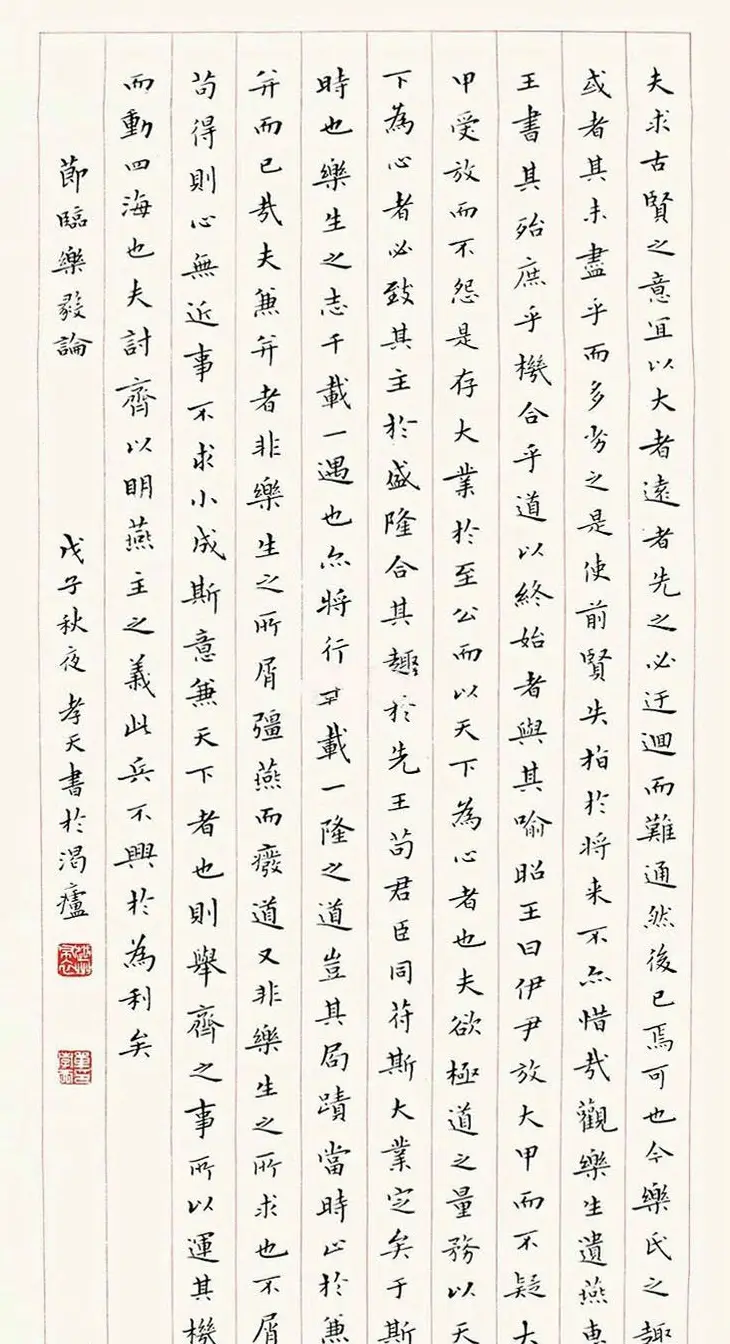 夫求古賢之意宜以大者遠者先之必迂迴而難通然後已焉可也今樂氏之趣
或者其未盡乎而多劣之是使前賢失指於将来不亦惜哉觀樂生遺燕惠
王書其殆庶乎機合乎道以終始者與其喻昭王曰伊尹放大甲而不疑大
甲受放而不怨是存大業於至公而以天下為心者也夫欲極道之量務以天
下為心者必致其主於盛隆合其趣於先王苟君臣同符斯大業定矣于斯
時也樂生之志千載一遇也亦將行千載一隆之道豈其局蹟當時止於兼
并而已哉夫兼并者非樂生之所屑彊燕而癈道又非樂生之所求也不屑
苟得則心無近事不求小成斯意兼天下者也則舉齊之事所以運其機
而動四海也夫討齊以明燕主之義此兵不興於為利矣
節臨樂毅論
戊子秋夜孝天書於渴廬